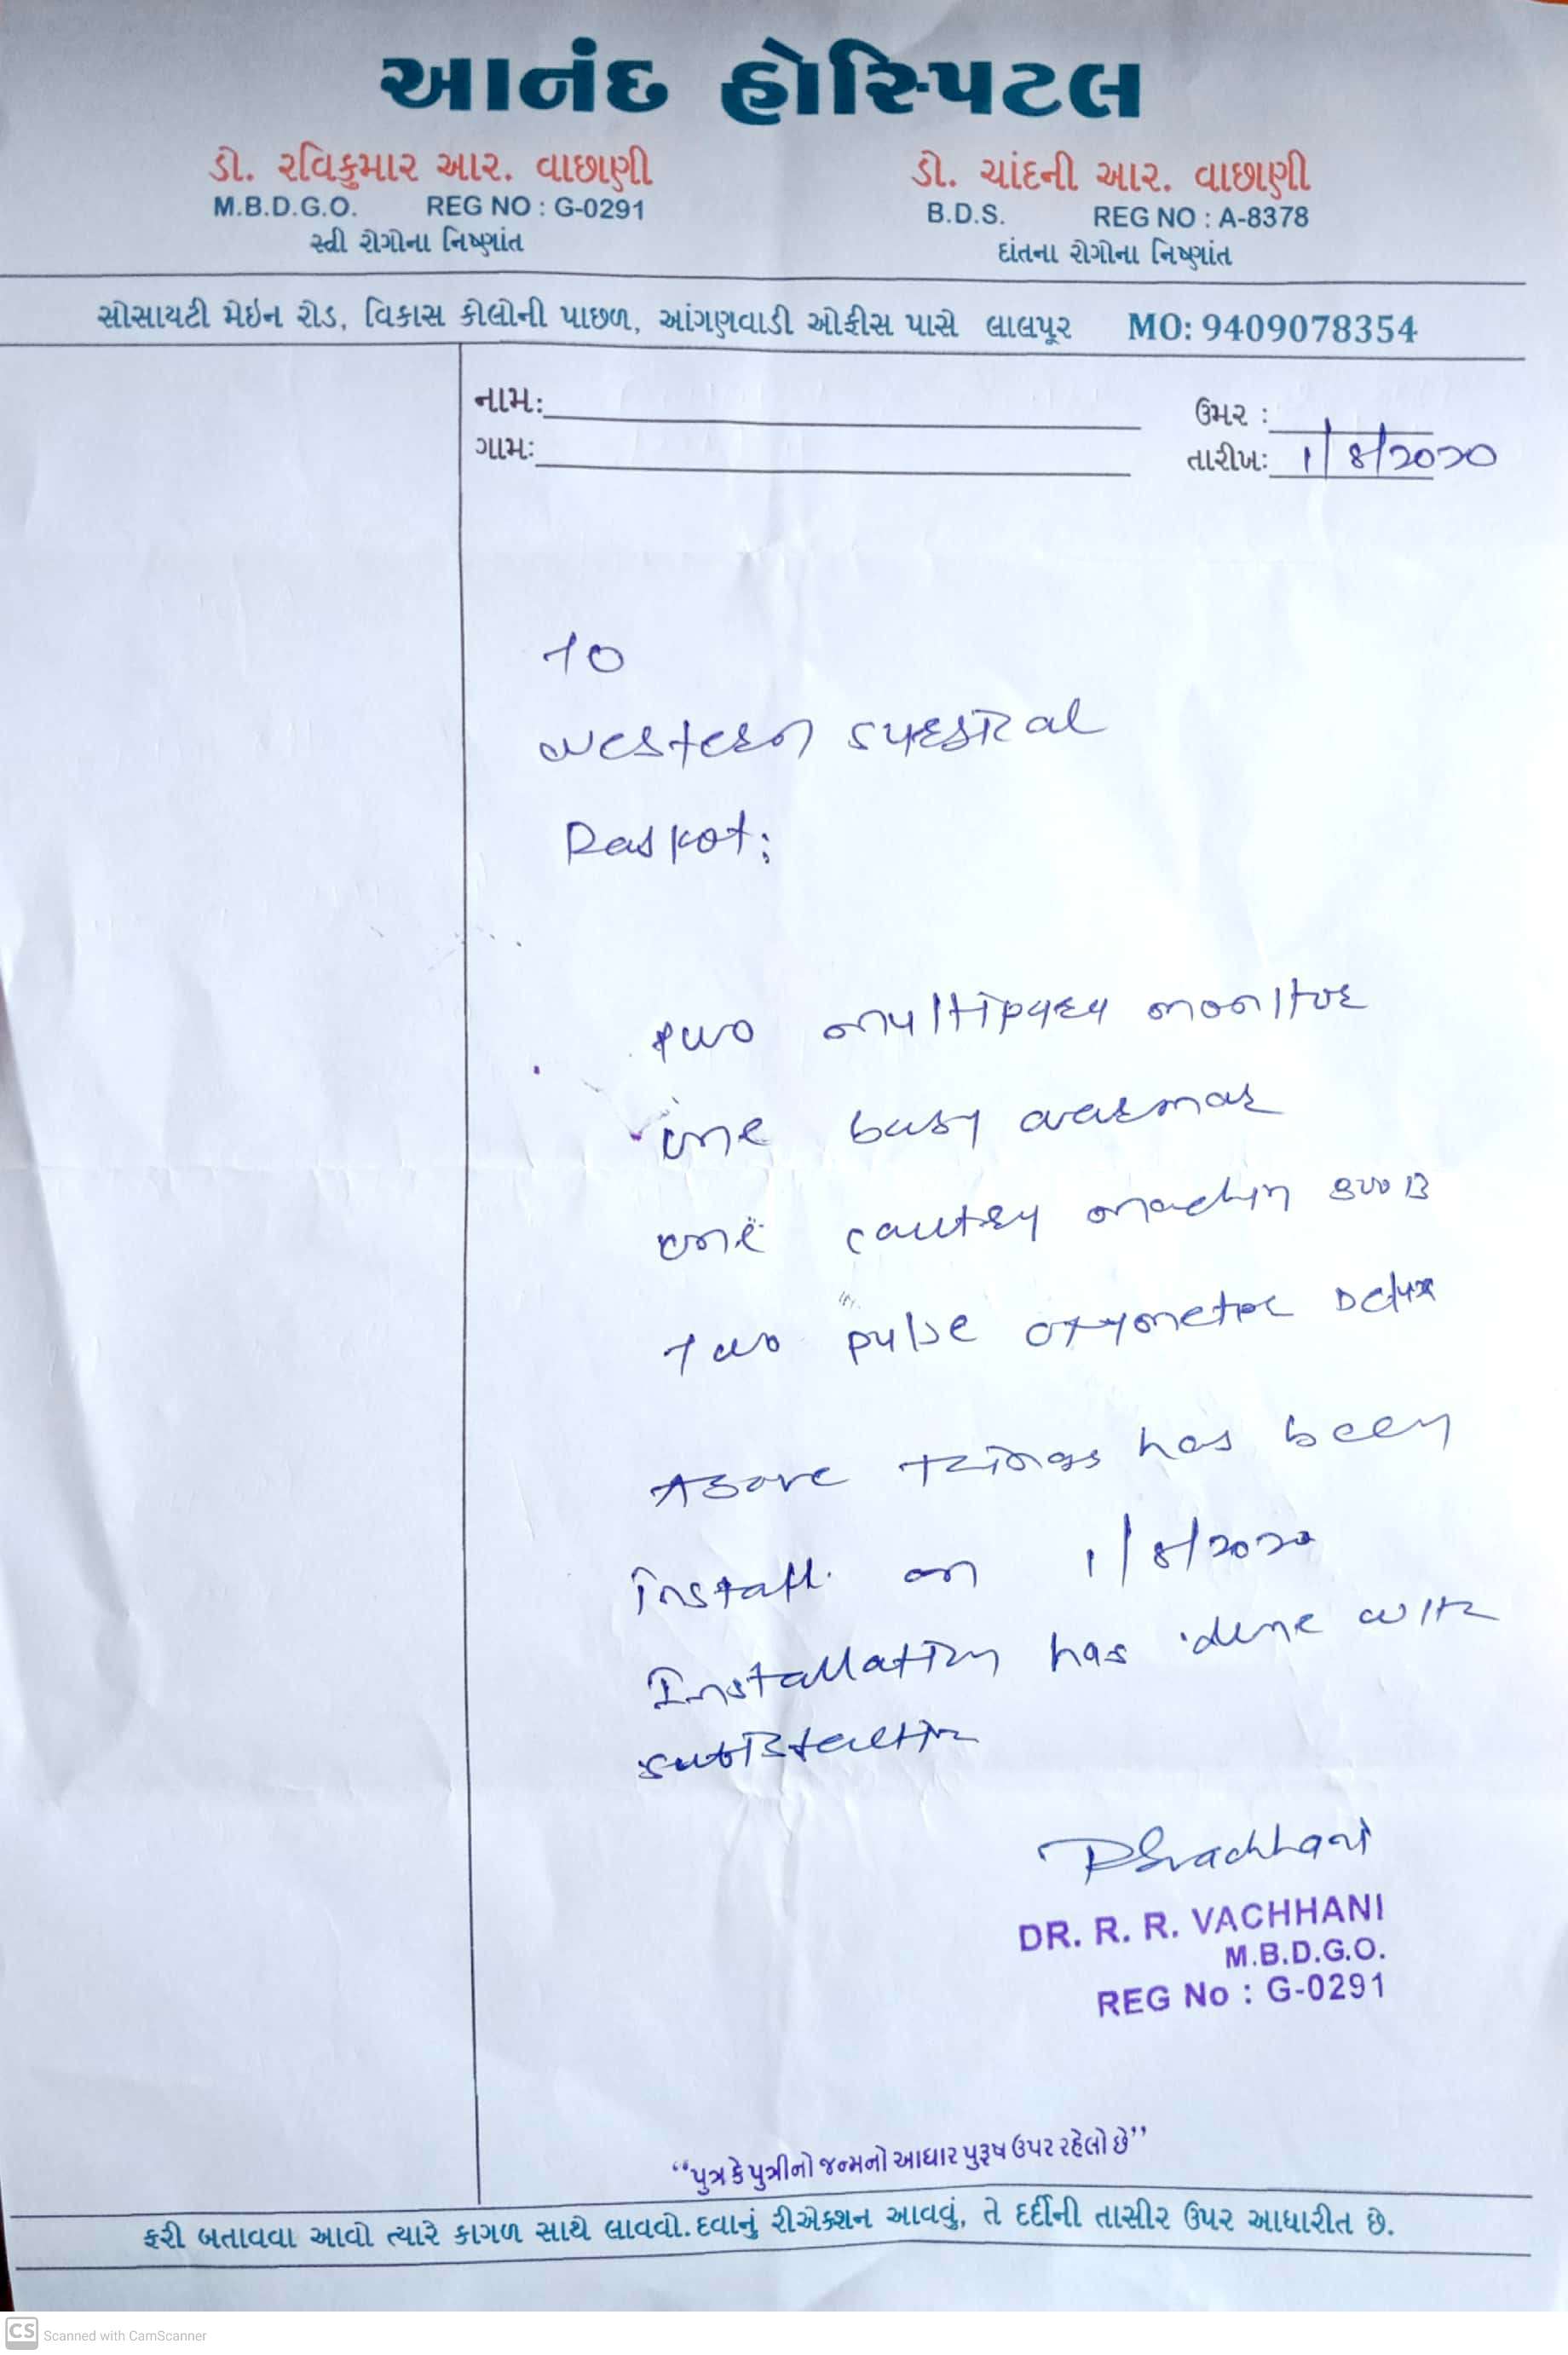 આનંદ હોસ્પિટલ
ડો. રવિકુમાર આર. વાછાણી
M.B.D.G.O. REG NO : G-0291
સ્ત્રી રોગોના નિષ્ણાંત
ડો. ચાંદની આર. વાછાણી
B.D.S. REG NO : A-8378
દાંતના રોગોના નિષ્ણાંત
સોસાયટી મેઇન રોડ, વિકાસ કોલોની પાછળ, આંગણવાડી ઓફીસ પાસે લાલપૂર MO: 9409078354
નામ:
ઉમર :
ગામ:
તારીખ: 1/8/2020
To
western
Rajkot:
two multipara monitor
one baby warmar
one cautry machin
Two pulse oxymeter Delux
Above things has been
install. on 1/8/2020
Installation has done with
DR. R. R. VACHHANI
M.B.D.G.O.
REG No : G-0291
“પુત્ર કે પુત્રીનો જન્મનો આધાર પુરૂષ ઉપર રહેલો છે”
ફરી બતાવવા આવો ત્યારે કાગળ સાથે લાવવો. દવાનું રીએક્શન આવવું, તે દર્દીની તાસીર ઉપર આધારીત છે.
CS Scanned with CamScanner